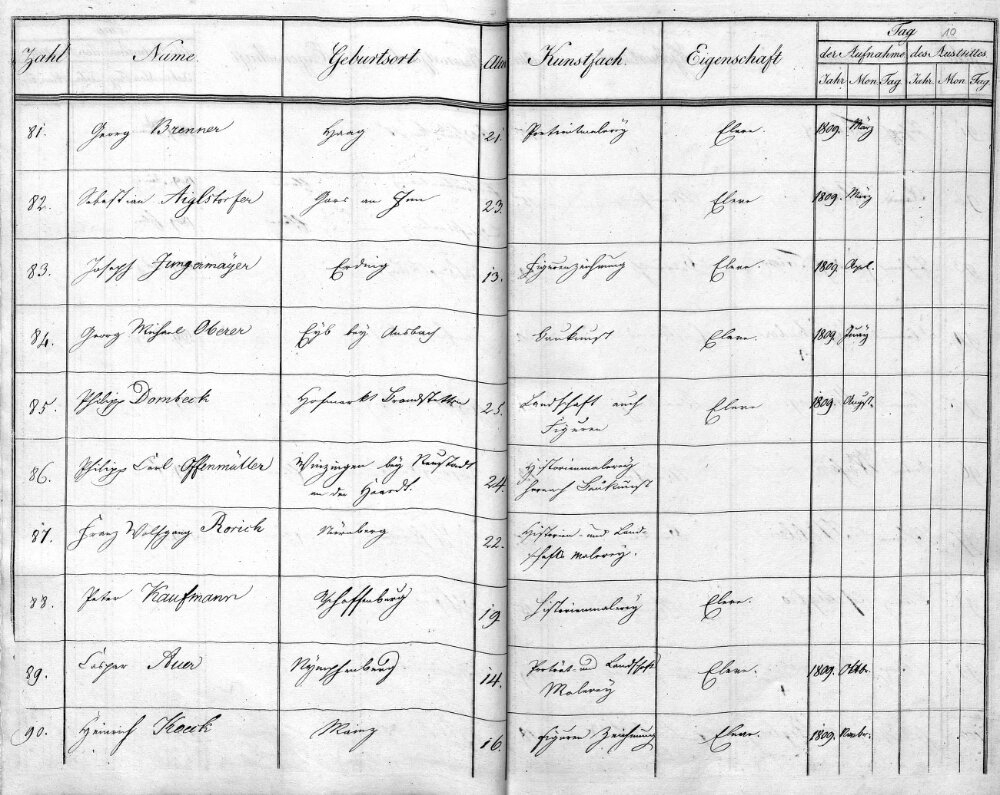 Tag 10
Zahl Name Geburtsort Alter Kunstfach Eigenschaft der Aufnahme des Austrittes
Jahr Mon Tag Jahr Mon Tag
81. Georg Brenner Haag 21. Portraitmalerey Eleve. 1809. März
82. Sebastian Aiglstorfer Gars am Inn 23. Eleve 1809. März
83. Joseph Jungermayer Erding 13. Figurenzeichnung Eleve. 1809. Apl.
84. Georg Michael Oberer Eyb bey Ansbach Baukunst Eleve. 1809. Juny
85. Philipp Dornbeck Hofmarkt Brandstetten 25. Landschaft auch Eleve 1809. Augst.
Figuren
86. Philipp Carl Offenmüller Winzingen bey Neustadt 24. Historienmalerey
an der Haardt. Baukunst
87. Franz Wolfgang Rorich Nürnberg 22. Historien- und Land-
schafts Malerey.
88. Peter Kaufmann Aschaffenburg 19. Historienmalerey Eleve.
89. Caspar Auer Nymphenburg 14. Portrait- und Landschaft Eleve. 1809. Oktb.
Malerey
90. Heinrich Koeck Mainz 16. Figuren Zeichnung Eleve. 1809. Novbr.